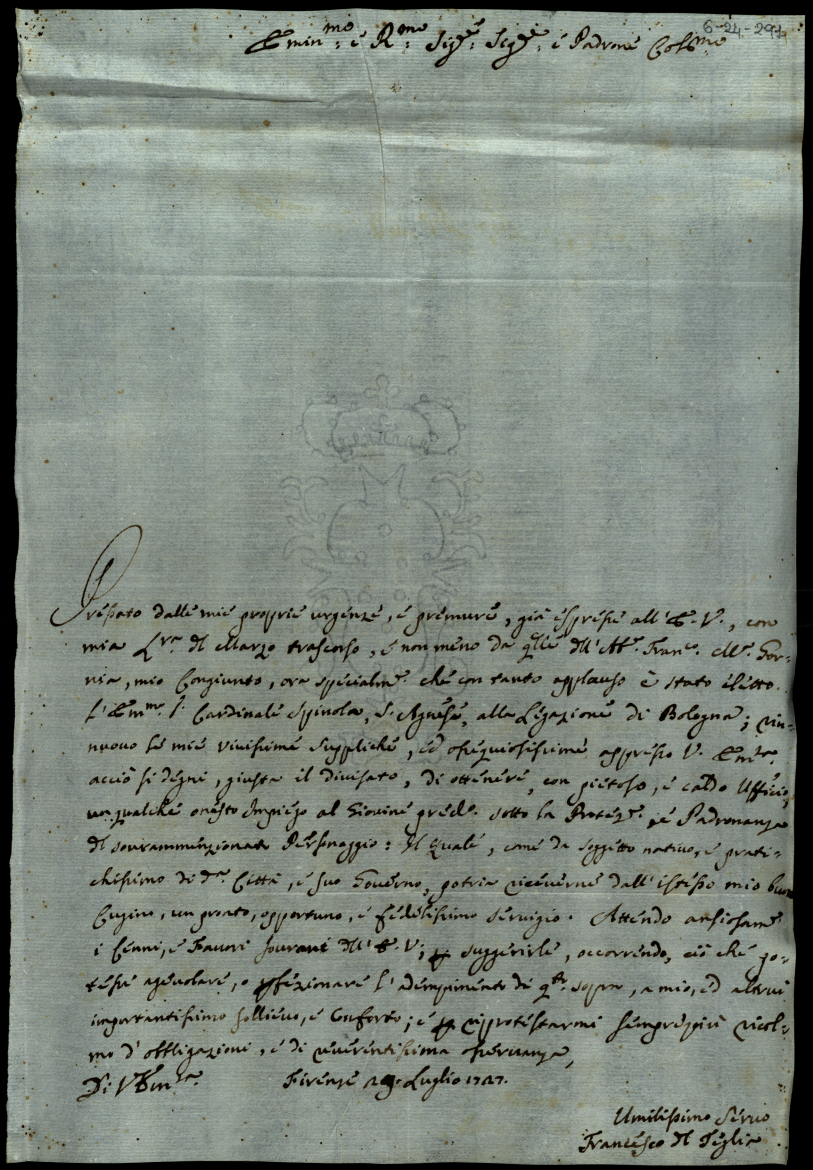 6-24-291
Emin:mo è R:mo Sig:re Sig:re è Padrone Col:mo
Pressato dalle mie proprie urgenze, è premure, già espresse all'E. V., con
mia L:ra dl Marzo trascorso, è non meno da qlle dll'Ab:e Fran:co M:a Gor-
nia, mio Congiunto, ora specialm:e che con tanto applauso è stato eletto
l'Em:mo S:r Cardinale Spinola, S. Agnese, alla Legazione di Bologna; rin-
nuovo le mie vivissime suppliche, ed ossequiosissime appresso V. Em:za
acciò si degni, giusta il divisato, di ottenere, con pietoso, è caldo Uffício,
un qualche onesto Impiego al Giovine pred:o sotto la Protez:e, è Padronanza
dl sovrammenzionato Personaggio: Il quale, come da soggetto nativo, è prati-
chissimo di d:a Città, è suo Governo, potria riceverne dall'istesso mio buon
Cugino, un pronto, opportuno, è fedelissimo servigio. Attendo ansiosam:e
i Cenni, è Favori sovrani dll'E. V; p suggerirle, occorrendo, ciò che po-
tesse agevolare, o pfezionare l'adempimento di q:to sopra, a mio, ed altrui
importantissimo sollievo, è Conforto; è p riprotestarmi sempre più ricol-
mo d'obbligazioni, è di reverentissima osservanza,
Di V Em:za Firenze 29. Luglio 1727.
Umilissimo Servo
Francesco dl Teglia